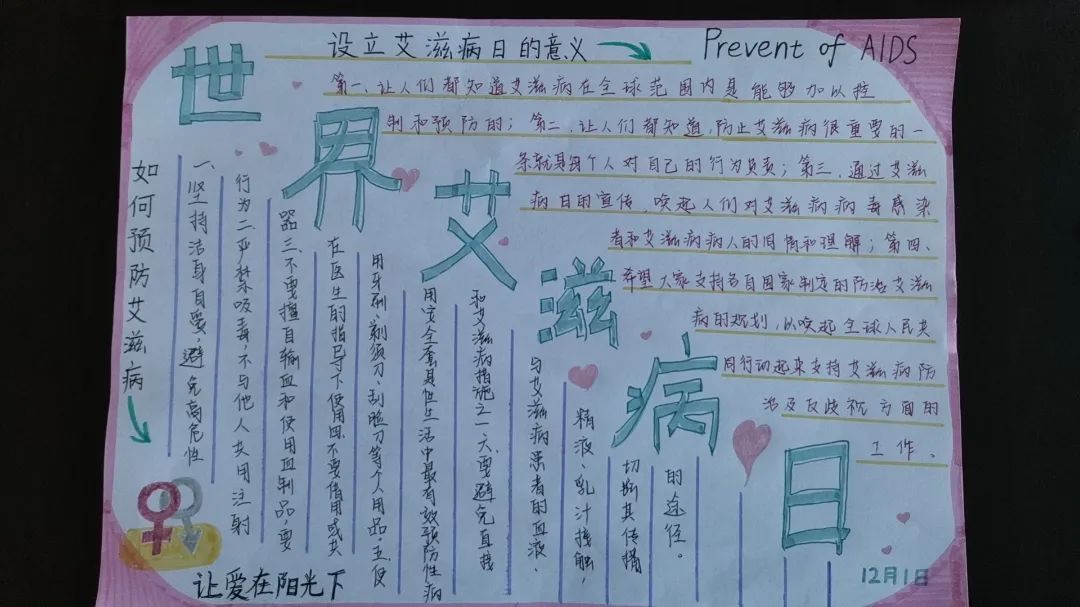 设立艾滋病日的意义
Prevent of AIDS
世界艾滋病日
第一、让人们都知道艾滋病在全球范围内是能够加以控
制和预防的；第二，让人们都知道，防止艾滋病很重要的一
条就是每个人对自己的行为负责；第三，通过艾滋
病日的宣传，唤起人们对艾滋病病毒感染
者和艾滋病病人的同情和理解；第四、
希望大家支持各自国家制定的防治艾滋
病的规划，以唤起全球人民共
同行动起来支持艾滋病防
治及反歧视方面的
工作、
如何预防艾滋病
一、坚持洁身自爱，避免高危性
行为二严禁吸毒，不与他人共用注射
器三、不要擅自输血和使用血制品，要
在医生的指导下使用四、不要借用或共
用牙刷、剃须刀、刮脸刀等个人用品，五使
用安全套是性生活中最有效预防性病
和艾滋病措施之一六、要避免直接
与艾滋病患者的血液、
精液、乳汁接触，
切断其传播
的途径。
让爱在阳光下
12月1日